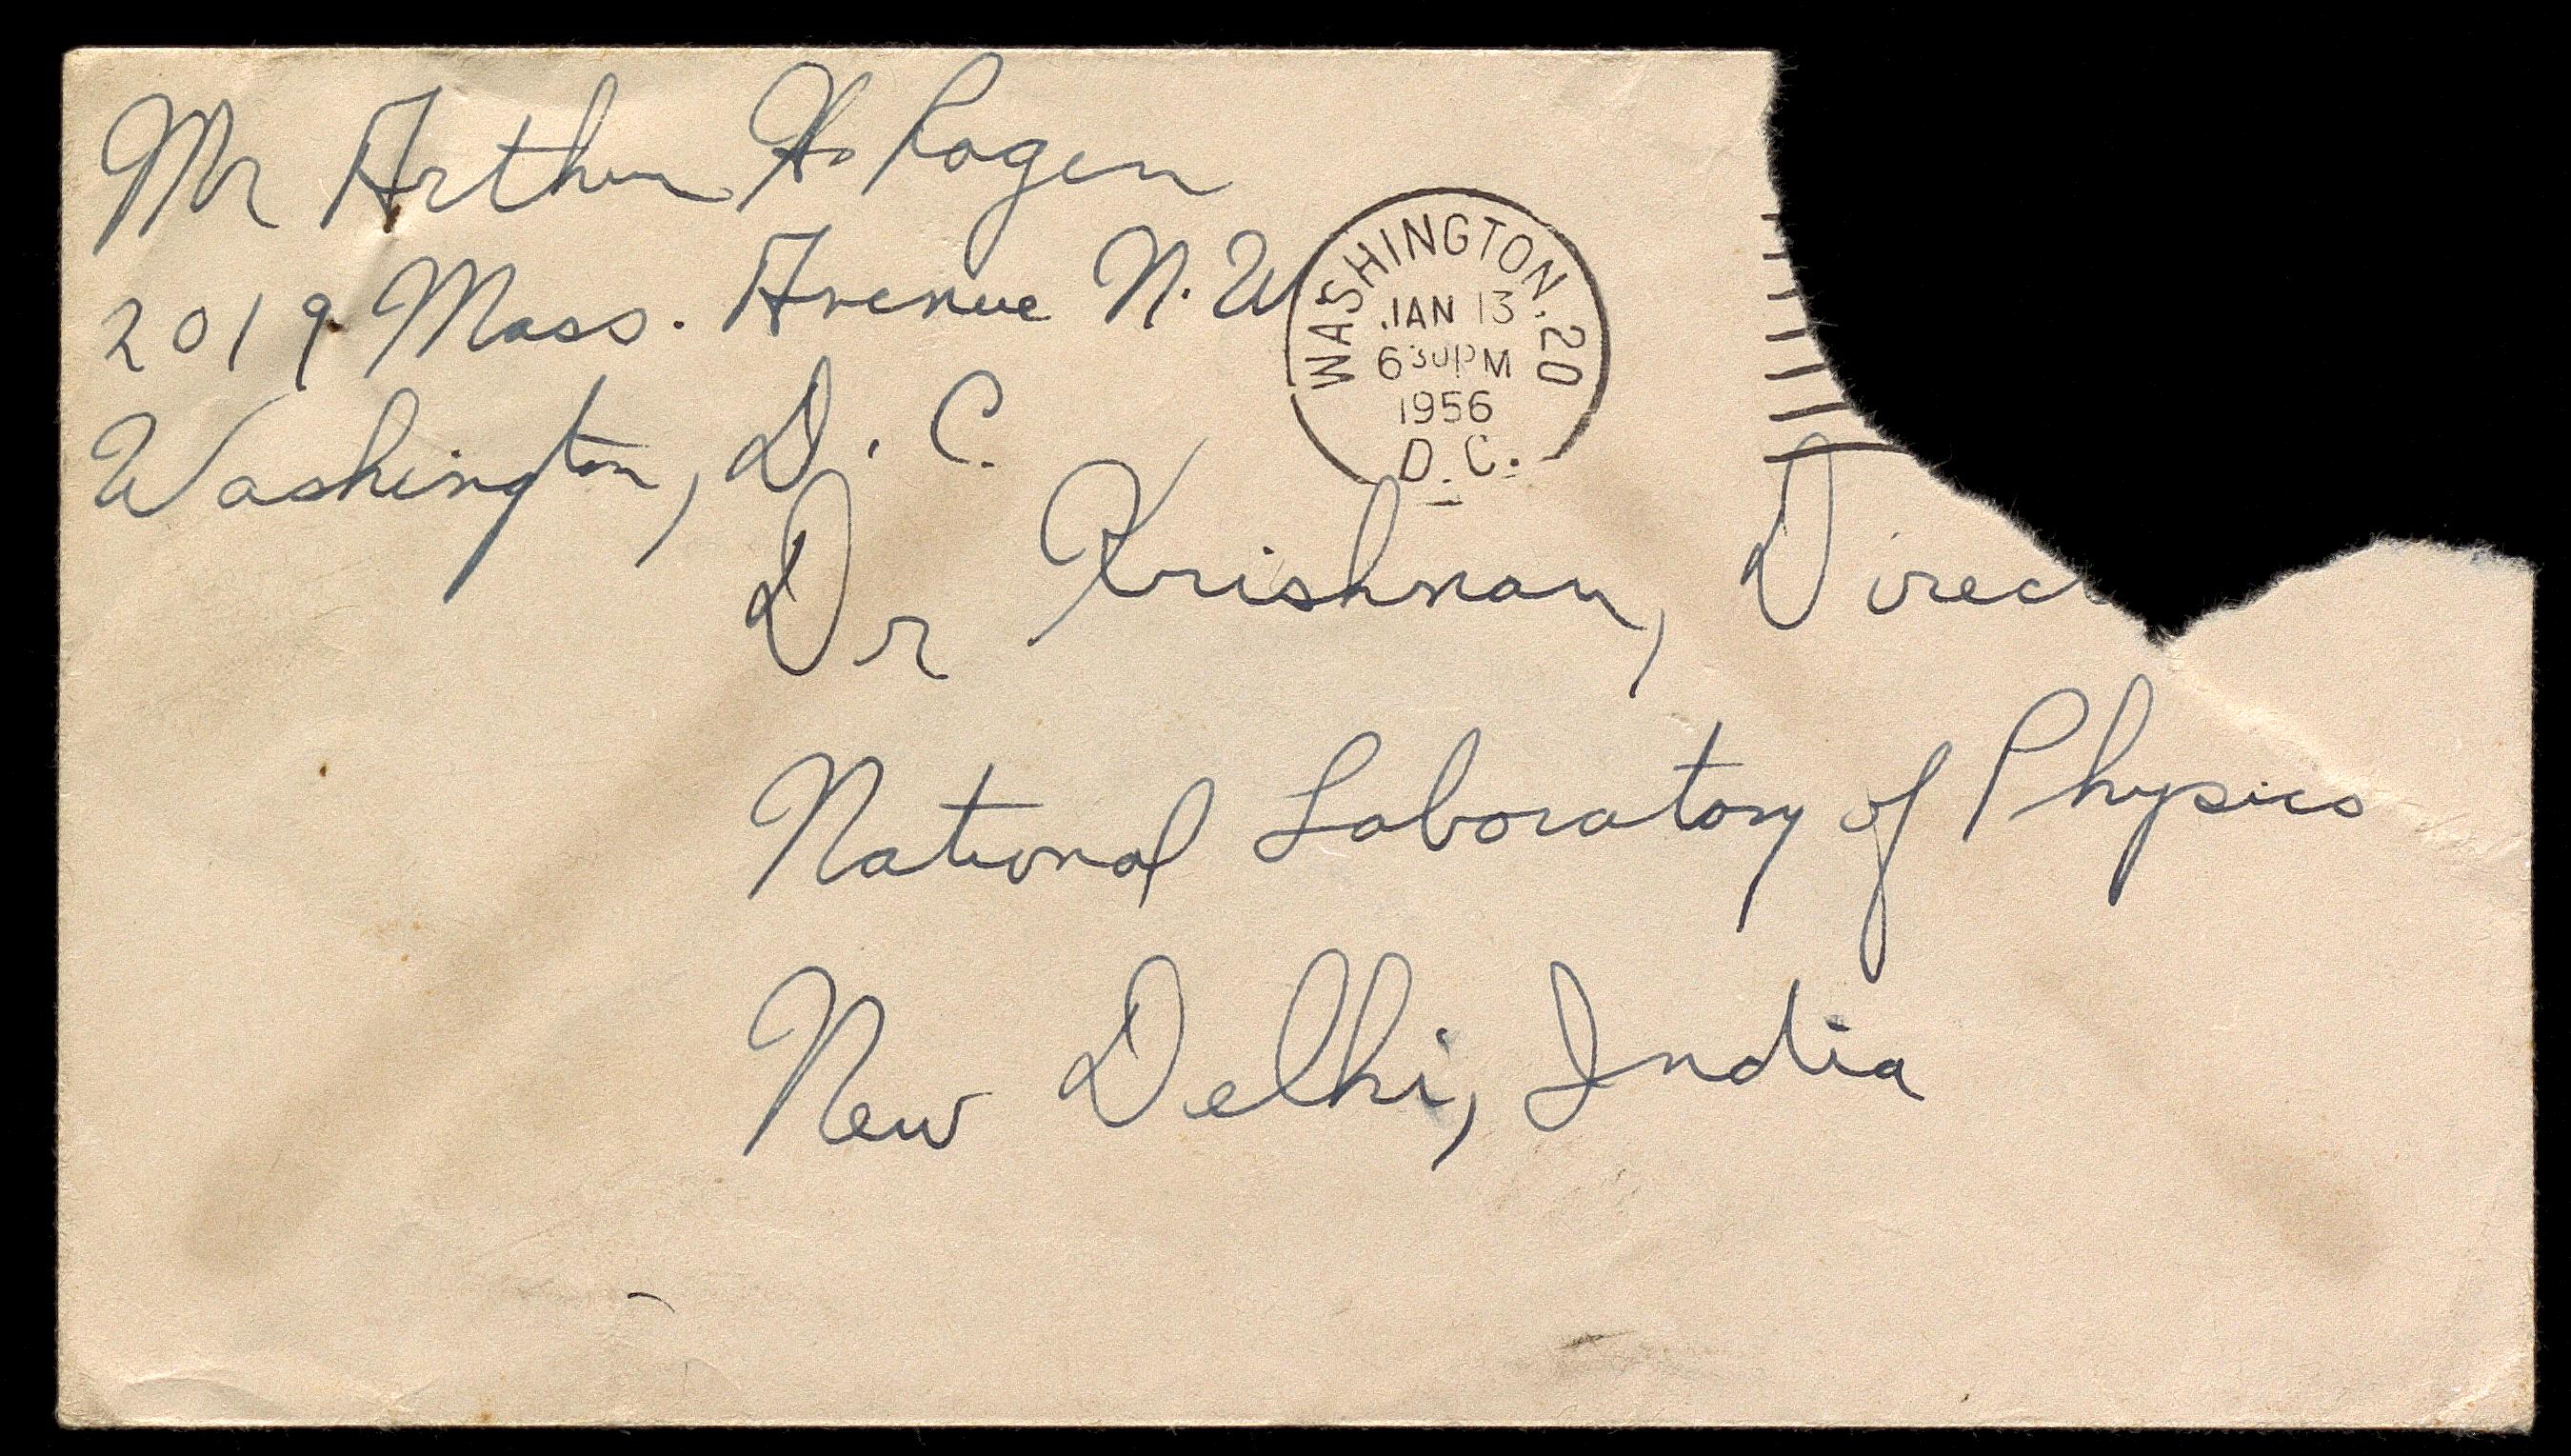 Mr Arthur H. Rogen
2019 Mass. Avenue N.W
Washington, D.C.
WASHINGTON. 20
JAN 13
630PM
1956
D.C.
Dr Krishnan, Direc
National Laboratory of Physics
New Delhi, India